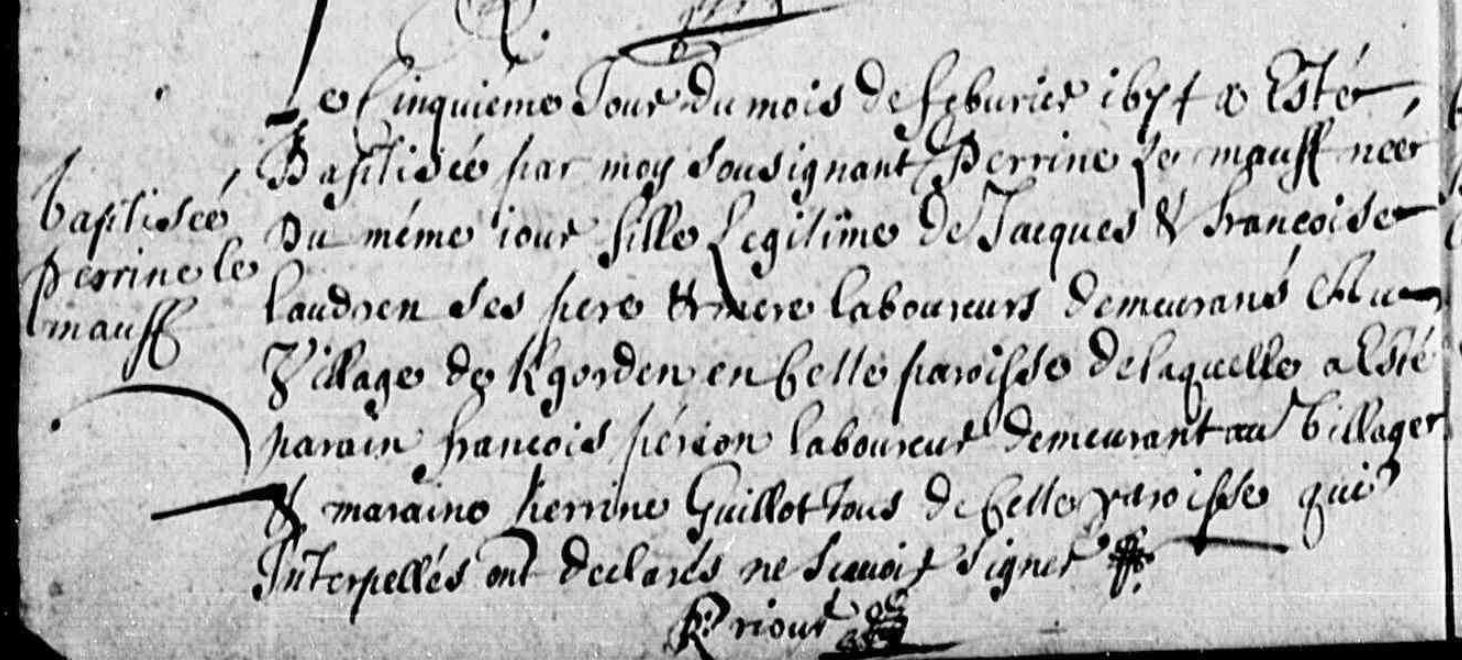 Le Cinquiéme Jour du mois de feburier 1674 a Esté
Baptisée par moy sousignant Perrine Le mauff née
Du méme iour fille Legitime de Jacques & francoise
laudren ses pere & mere laboureurs demeurans au
Village de Kgorden en cette paroisse de laquelle a Esté
parain francois périon laboureur demeurant au Village
& maraine perrine Guillot tous de cette paroisse qui
Interpellés ont declarés ne scauoir signer
Baptisée
Perrine le
mauff
Priour